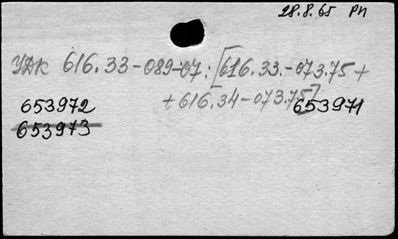 28.8.65 РП
УДК 616.33-089-07:[616.33.-073.75+
+616.34-073.75]
653972 653971
653973